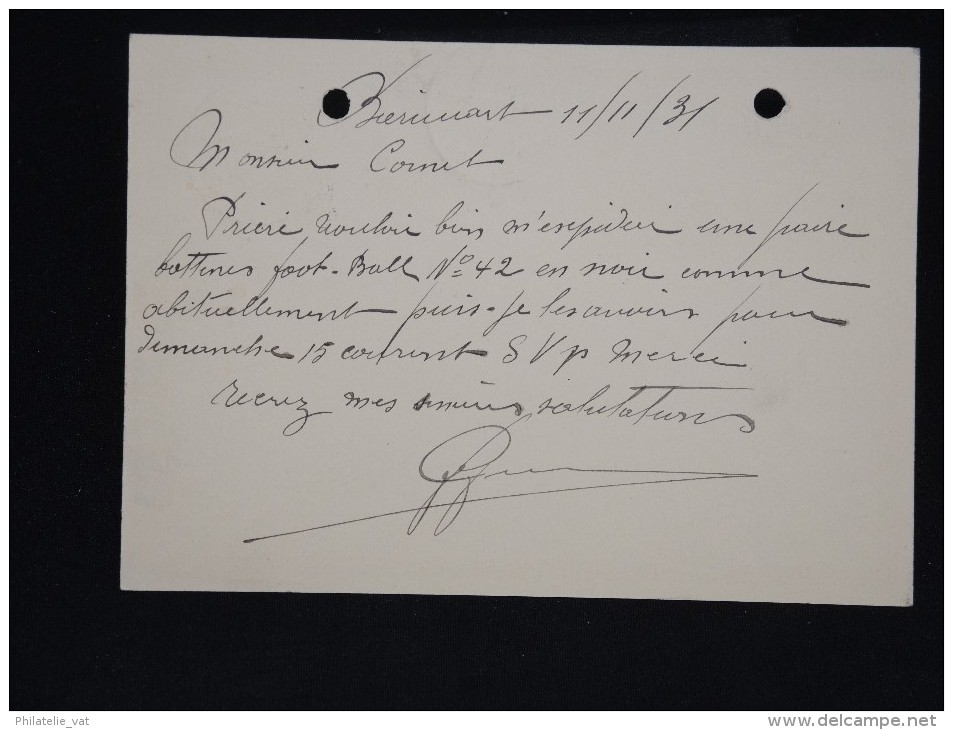 11/11/31
Monsieur Cornet
Prière vouloir bien m'expédier une paire
bottines foot-Ball No 42 en noir comme
abituellement puis-je les avoir pour
dimanche 15 courent S V p merci
recevez mes sincères salutations
Philatelie_vat
www.delcampe.net